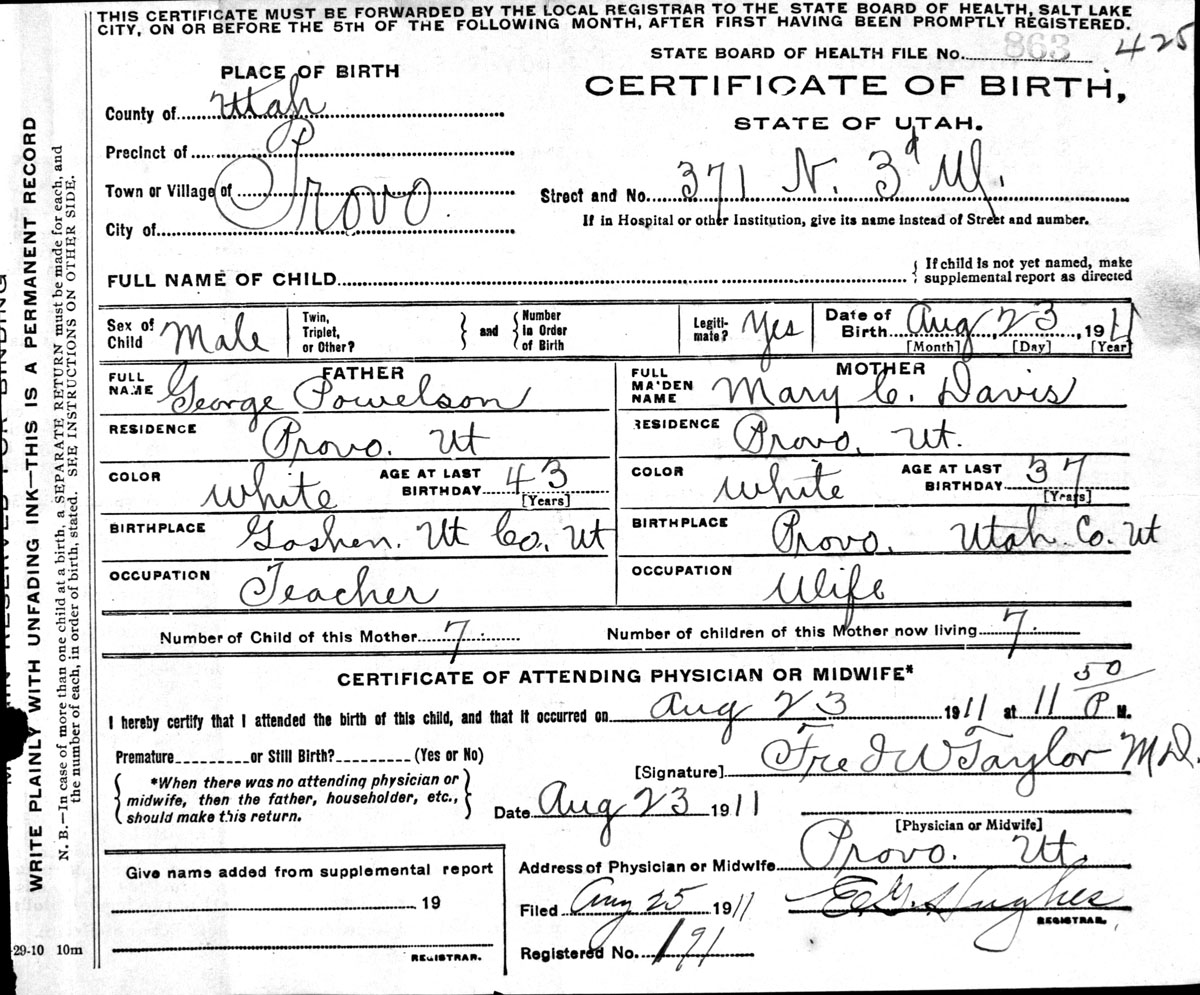 THIS CERTIFICATE MUST BE FORWARDED BY THE LOCAL REGISTRAR TO THE STATE BOARD OF HEALTH, SALT LAKE
CITY, ON OR BEFORE THE 5TH OF THE FOLLOWING MONTH, AFTER FIRST HAVING BEEN PROMPTLY REGISTERED.
STATE BOARD OF HEALTH FILE No. 863 425
PLACE OF BIRTH
CERTIFICATE OF BIRTH,
County of Utah
STATE OF UTAH.
Precinct of
Town or Village of Provo
Street and No. 371 N. 3d W.
City of
If in Hospital or other Institution, give its name instead of Street and number.
FULL NAME OF CHILD
{ If child is not yet named, make
supplemental report as directed
Sex of Child Male
Twin, Triplet, or Other? } and { Number In Order of Birth
Legiti-mate? Yes
Date of Birth Aug 23, 1911
[Month] [Day] [Year]
FATHER
FULL NAME George Powelson
MOTHER
FULL MAIDEN NAME Mary C. Davis
RESIDENCE Provo. Ut
RESIDENCE Provo. Ut.
COLOR White AGE AT LAST BIRTHDAY 43 [Years]
COLOR White AGE AT LAST BIRTHDAY 37 [Years]
BIRTHPLACE Goshen. Ut Co. Ut
BIRTHPLACE Provo. Utah Co. Ut
OCCUPATION Teacher
OCCUPATION Wife
Number of Child of this Mother 7
Number of children of this Mother now living 7
CERTIFICATE OF ATTENDING PHYSICIAN OR MIDWIFE*
I hereby certify that I attended the birth of this child, and that it occurred on Aug 23 1911 at 11 50 P M.
Premature or Still Birth? (Yes or No)
[Signature] Fred W Taylor M.D.
*When there was no attending physician or
midwife, then the father, householder, etc.,
should make this return.
Date Aug 23 1911
[Physician or Midwife]
Address of Physician or Midwife Provo. Ut.
Give name added from supplemental report
19
REGISTRAR.
Filed Aug 25 1911
E. G. Hughes
REGISTRAR.
Registered No. 191
29-10 10m
WRITE PLAINLY WITH UNFADING INK—THIS IS A PERMANENT RECORD
N. B.—In case of more than one child at a birth, a SEPARATE RETURN must be made for each, and
the number of each, in order of birth, stated. SEE INSTRUCTIONS ON OTHER SIDE.
RESERVED FOR BINDING